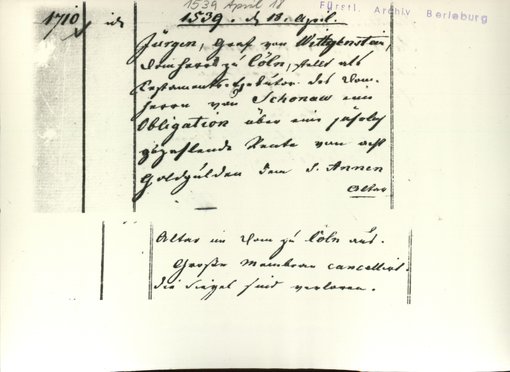 1539 April 18
Fürstl. Archiv Berleburg
1710 id. 1539. d. 18. April.
Jürgen, Graf von Wittgenstein,
Domherr zu Cöln, stellt als
Testaments-Exekutor des Dom-
herrn von Schonaw eine
Obligation über eine jährlich
zu zahlende Rente von acht
Goldgülden dem S. Annen
Altar
Altar im Dom zu Cöln aus.
Große Membran cancellirt.
die Siegel sind verloren.